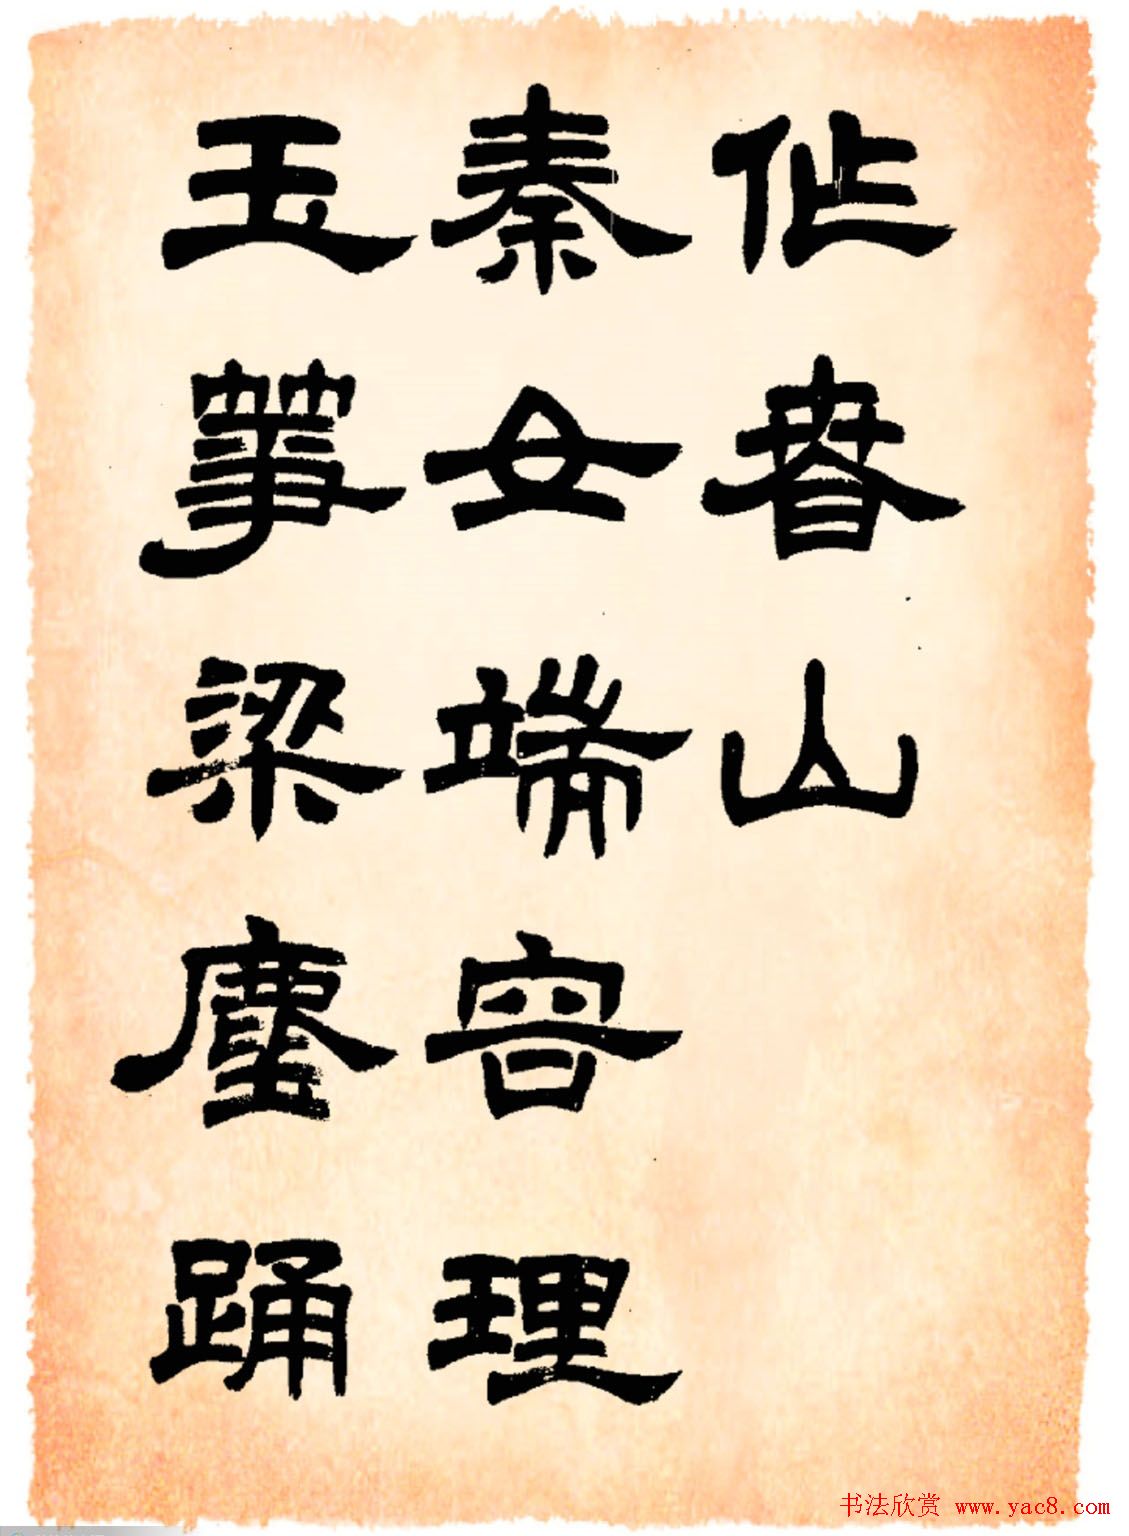 作春山
秦女端容理
玉筝梁塵踊
书法欣赏 www.yac8.com